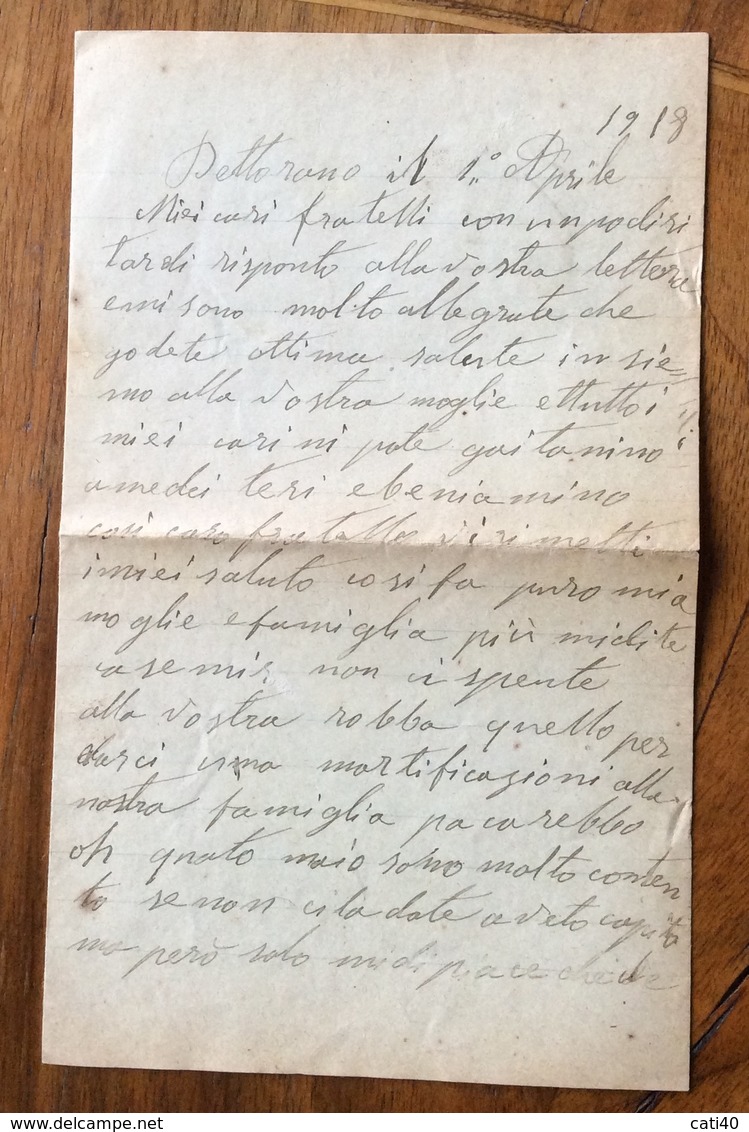 1918
Pettorano il 1.° Aprile
Miei cari fratelli con un po di ri
tardi risponto alla vostra lettera
e mi sono molto allegrate che
godete ottima salute in sie
mo alla vostra moglie e ttutto i
miei cari ni pote gaitanino
amedei teri e beniamino
cosi caro fratello vi ri metti
i miei saluto cosi fa puro mia
moglie e famiglia più mi dite
casemis non ci spente
alla vostra robba quello per
darci una mortificazioni alla
nostra famiglia pacarebbo
oh quato ma io sono molto conten
to se non ci la date aveto capito
ma però solo mi dipiace che
cati40